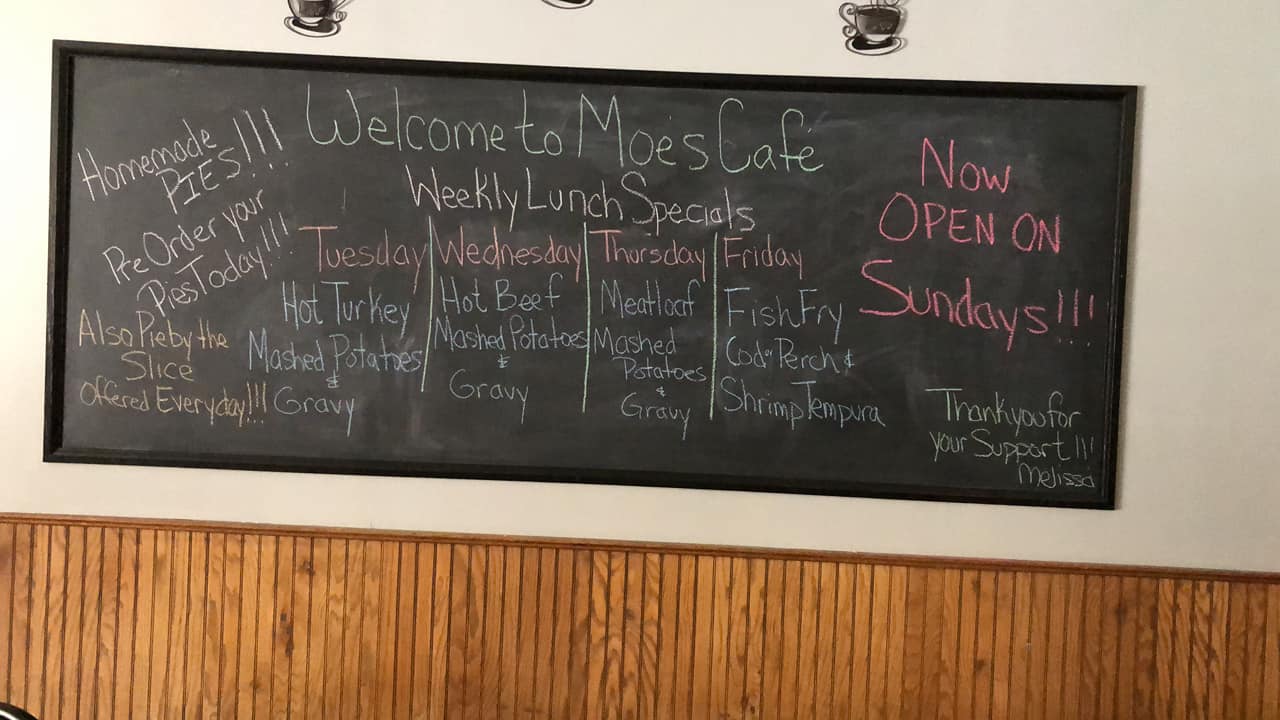 Welcome to Moe's Café
Homemade
PIES!!!
Pre Order your
Pies Today!!!
Also Pie by the
Slice
offered Everyday!!!
Weekly Lunch Specials
Tuesday
Hot Turkey
Mashed Potatoes
&
Gravy
Wednesday
Hot Beef
Mashed Potatoes
&
Gravy
Thursday
Meatloaf
Mashed
Potatoes
&
Gravy
Friday
Fish Fry
Cod or Perch &
Shrimp Tempura
Now
OPEN ON
Sundays!!!
Thank you for
your Support!!!
Melissa